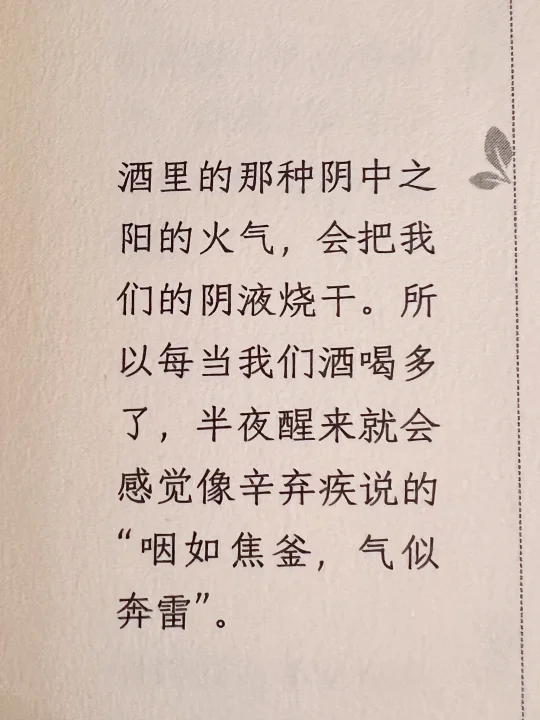 酒里的那种阴中之
阳的火气，会把我
们的阴液烧干。所
以每当我们酒喝多
了，半夜醒来就会
感觉像辛弃疾说的
“咽如焦釜，气似
奔雷”。